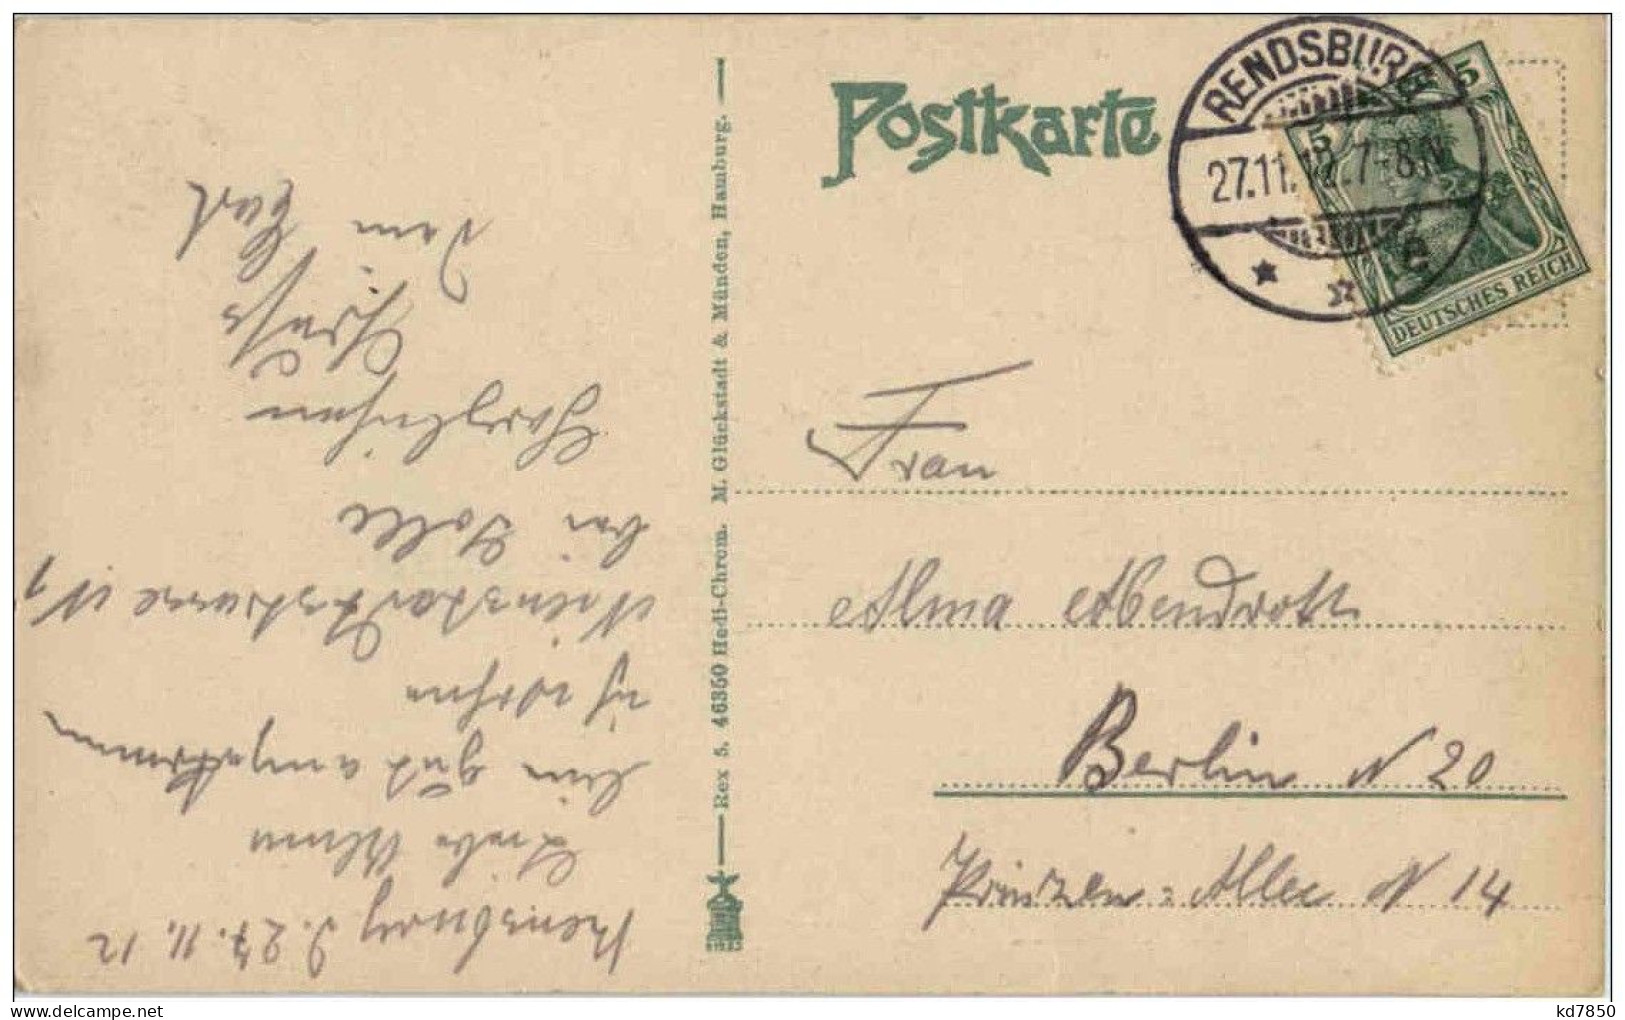 Postkarte
RENDSBURG
27.11.12.7-8N
5
5
DEUTSCHES REICH
Frau
Alma Abendroth
Berlin N 20
Prinzen-Allee N 14
Rex 5. 46350 Hedi-Chrom. M. Glückstadt & Münden, Hamburg.
Rensburg d. 27. 11. 12
Liebe Alma
bin gut angekommen
ich wohne
Neinstarkstrasse N 1
bei
Herzlichen
Gruß
dein
kd7850